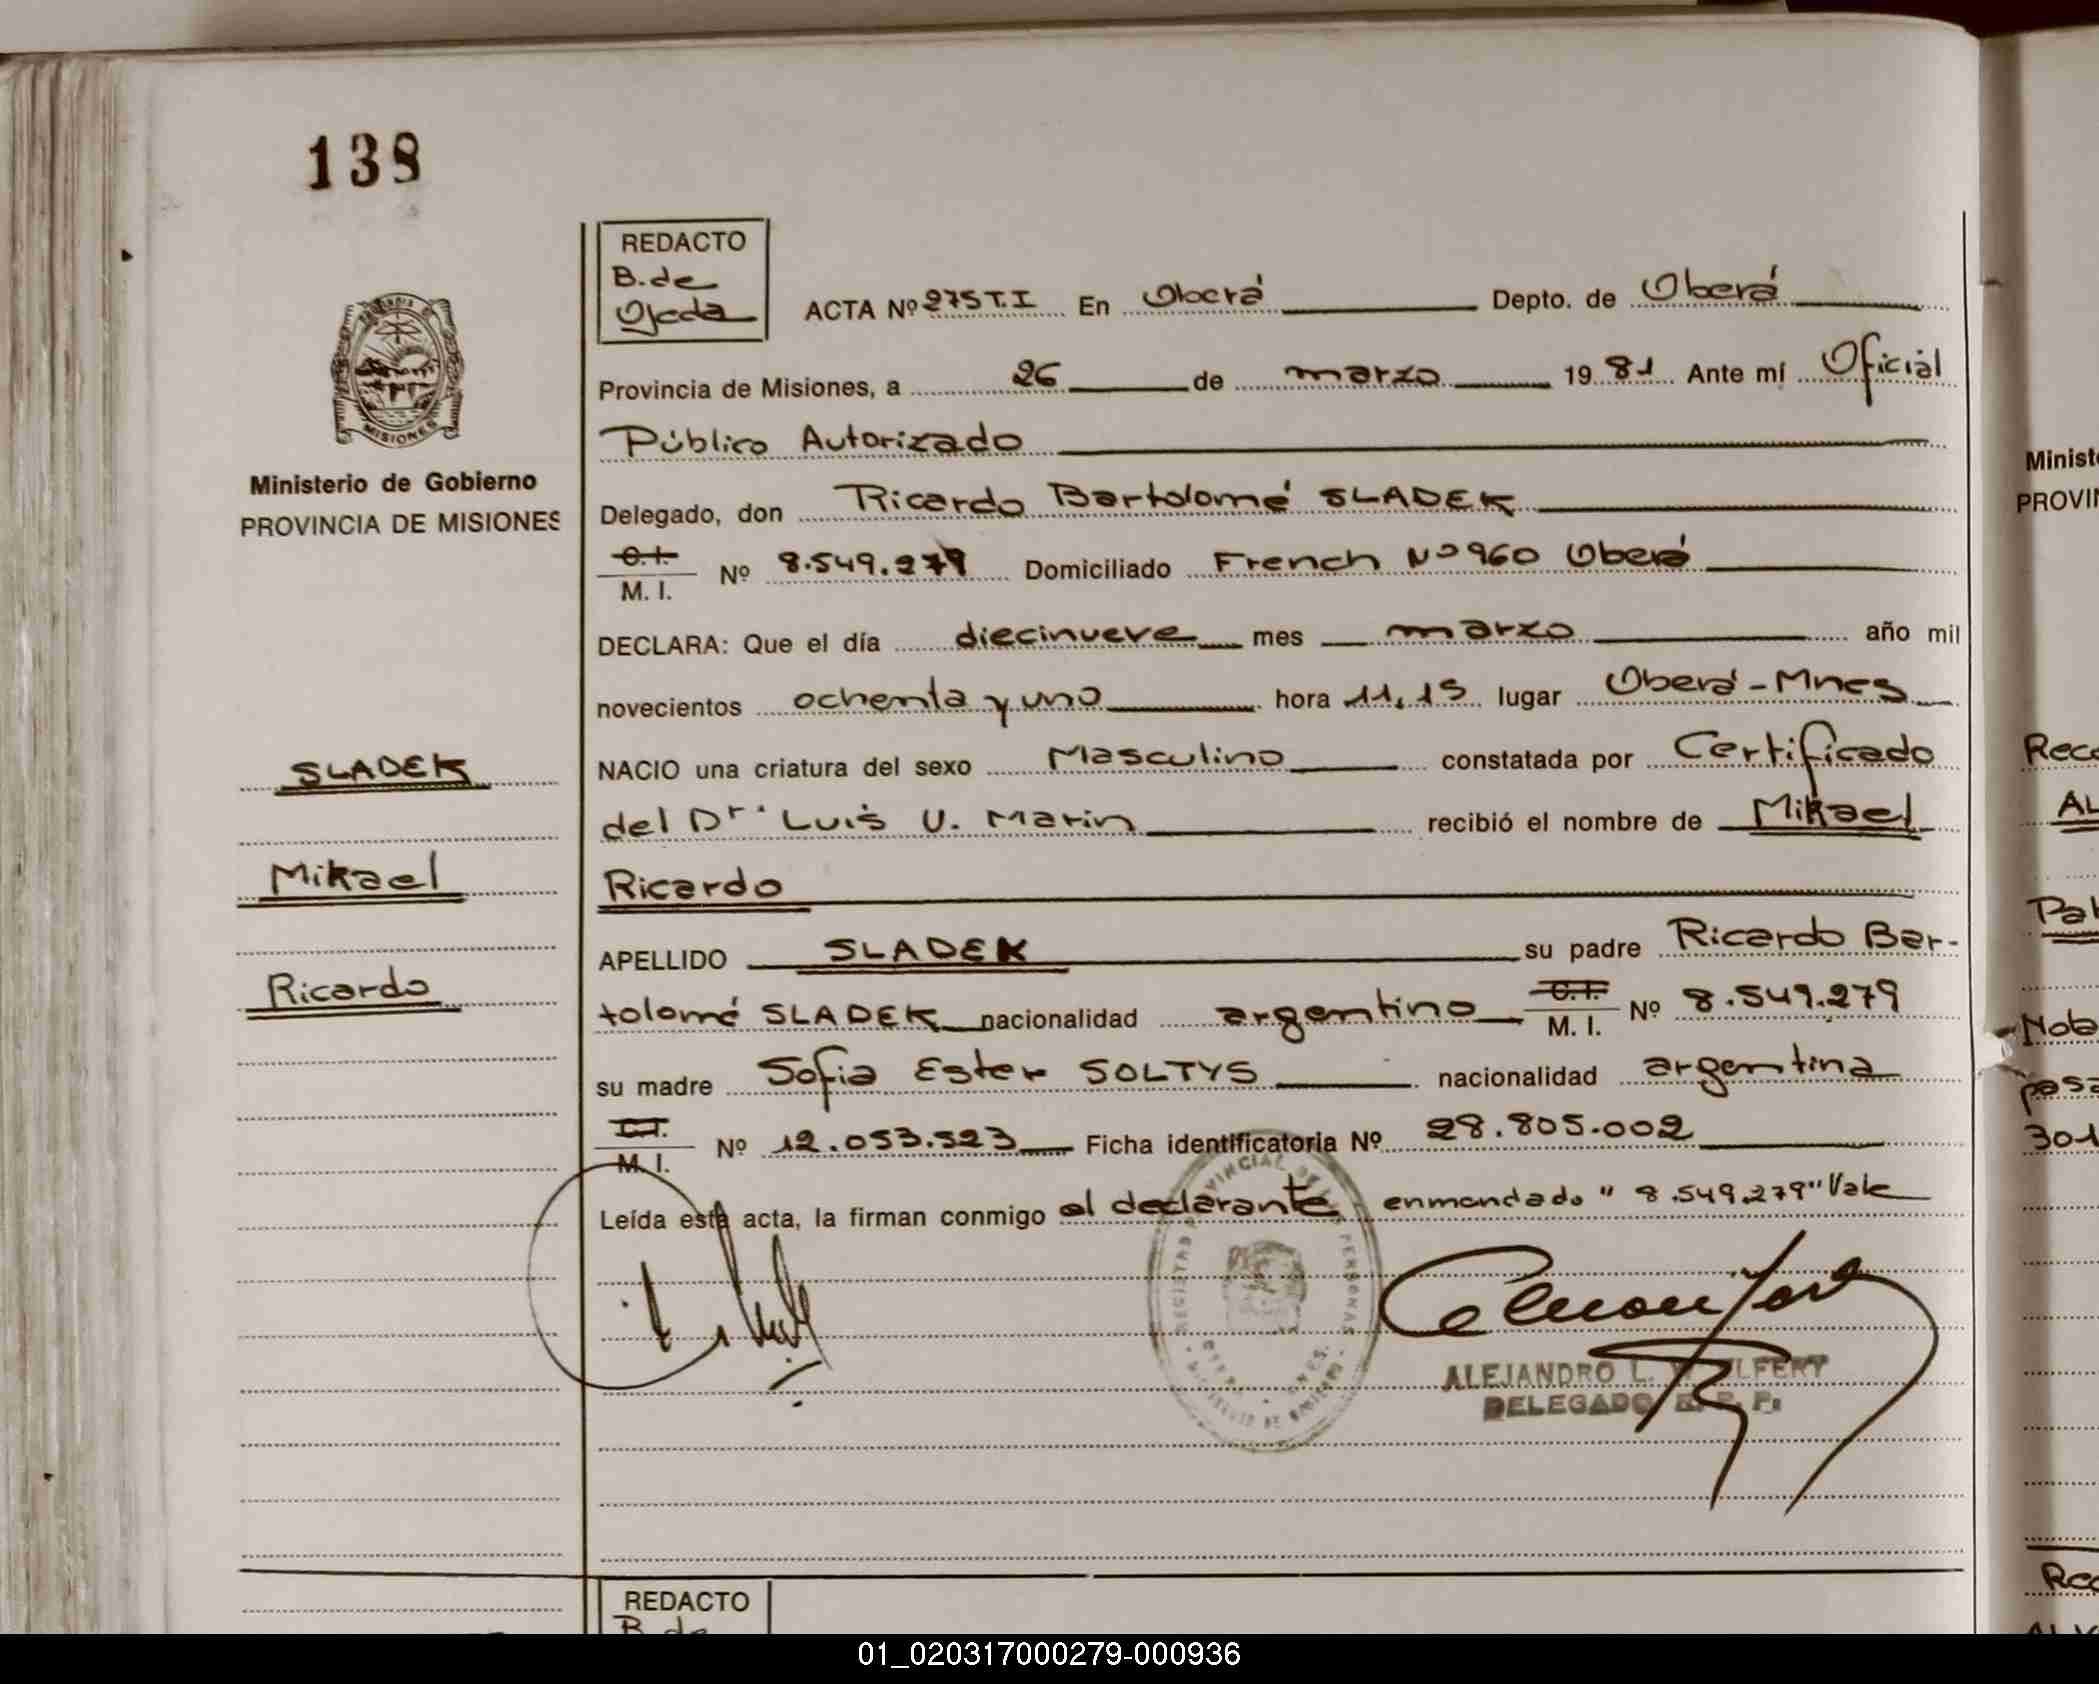 138
REDACTO
B. de
Ojeda
ACTA Nº 275 T.I En Oberá Depto. de Oberá
Provincia de Misiones, a 26 de marzo 1981 Ante mí Oficial
Público Autorizado
MISIONES
Ministerio de Gobierno
PROVINCIA DE MISIONES
Delegado, don Ricardo Bartolomé SLADEK
C.I.
M. I. Nº 8.549.279 Domiciliado French Nº 960 Oberá
DECLARA: Que el día diecinueve mes marzo año mil
novecientos ochenta y uno hora 11,15 lugar Oberá - Mnes
SLADEK
NACIO una criatura del sexo Masculino constatada por Certificado
del Dr. Luis U. Marin recibió el nombre de Mikael
Mikael
Ricardo
APELLIDO SLADEK su padre Ricardo Bar-
Ricardo
tolomé SLADEK nacionalidad argentino C.I.
M. I. Nº 8.549.279
su madre Sofia Ester SOLTYS nacionalidad argentina
M. I. Nº 12.053.523 Ficha identificatoria Nº 28.805.002
Leída esta acta, la firman conmigo el declarante enmendado "8.549.279" Vale
ALEJANDRO L.
DELEGADO
REDACTO
B. de
Minist
PROVIN
Reco
AL
Nota
pasa
301
01_020317000279-000936